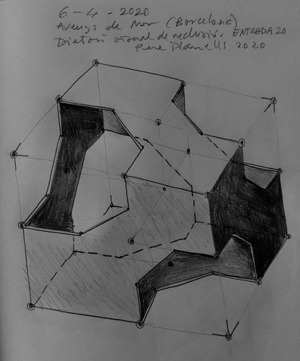 6-4-2020
Arenys de Mar (Barcelona)
Dietari visual de reclusió. ENTRADA 20
Pere Planells 2020